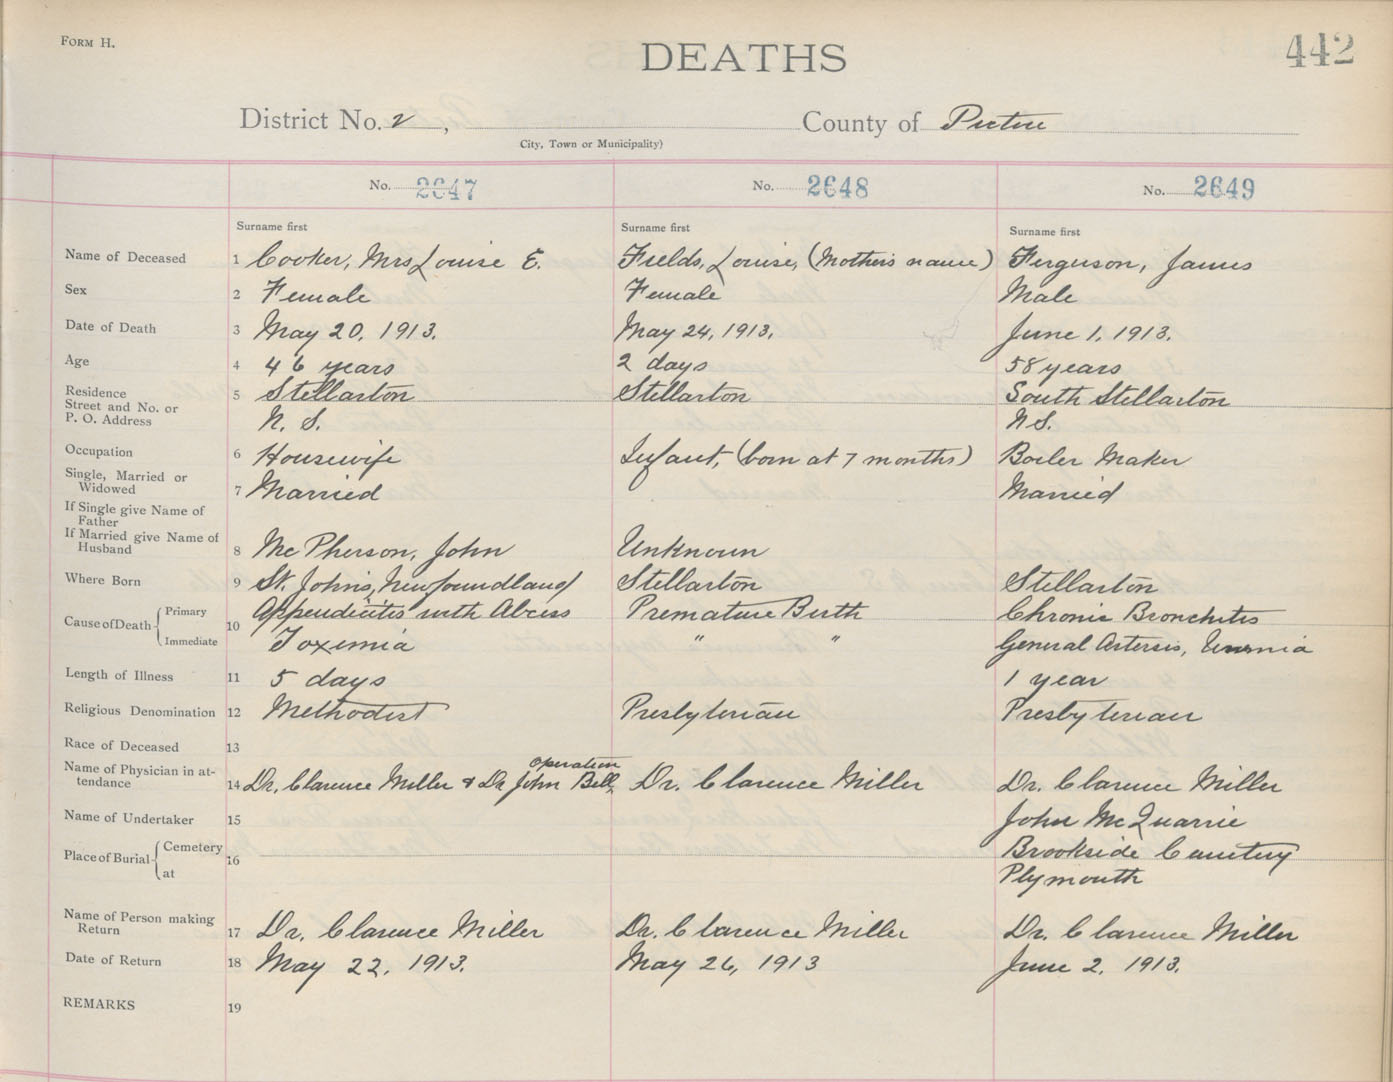 FORM H.
DEATHS
442
District No. 2, County of Pictou
City, Town or Municipality)
No. 2647 No. 2648 No. 2649
Surname first Surname first Surname first
Name of Deceased 1 Cooker, Mrs Louise E. Fields, Louise, (Mother's name) Ferguson, James
Sex 2 Female Female Male
Date of Death 3 May 20, 1913. May 24, 1913. June 1, 1913.
Age 4 46 years 2 days 58 years
Residence 5 Stellarton Stellarton South Stellarton
Street and No. or
P. O. Address N. S. N.S.
Occupation 6 Housewife Infant, (born at 7 months) Boiler Maker
Single, Married or
Widowed 7 Married Married
If Single give Name of
Father
If Married give Name of
Husband 8 McPherson, John Unknown
Where Born 9 St. John's, Newfoundland Stellarton Stellarton
Cause of Death Primary 10 Appendicites with Abcess Premature Birth Chronic Bronchitis
Immediate Toxemia " " General
Length of Illness 11 5 days 1 year
Religious Denomination 12 Methodist Presbyterian Presbyterian
Race of Deceased 13
operation
Name of Physician in at-
tendance 14 Dr. Clarence Miller & Dr John Bell, Dr. Clarence Miller Dr. Clarence Miller
Name of Undertaker 15 John McQuarrie
Place of Burial Cemetery 16 Brookside Cemetery
at Plymouth
Name of Person making
Return 17 Dr. Clarence Miller Dr. Clarence Miller Dr. Clarence Miller
Date of Return 18 May 22, 1913. May 26, 1913 June 2, 1913.
REMARKS 19